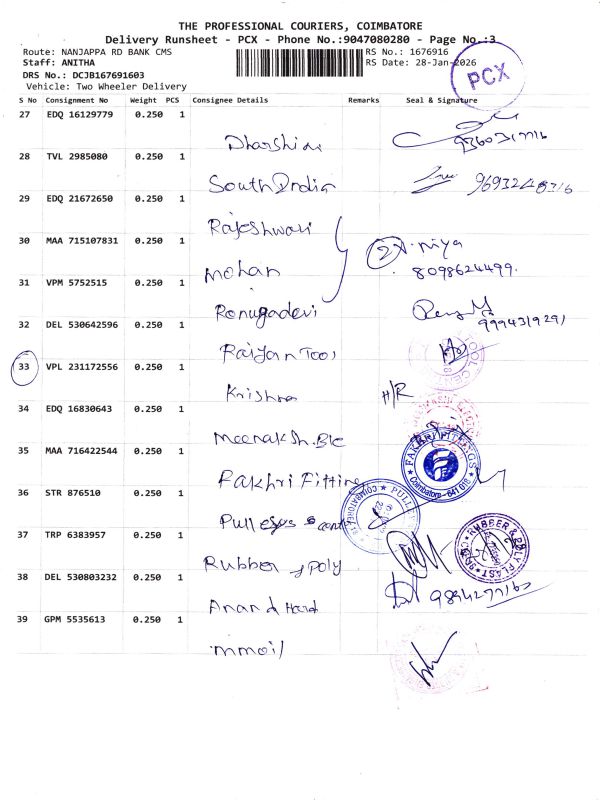 THE PROFESSIONAL COURIERS, COIMBATORE
Delivery Runsheet - PCX - Phone No.:9047080280 - Page No.:3
Route: NANJAPPA RD BANK CMS
RS No.: 1676916
Staff: ANITHA
RS Date: 28-Jan-2026
DRS No.: DCJB167691603
Vehicle: Two Wheeler Delivery
PCX
S No Consignment No Weight PCS Consignee Details Remarks Seal & Signature
27 EDQ 16129779 0.250 1
Dharshini
28 TVL 2985080 0.250 1
South India
29 EDQ 21672650 0.250 1
Rajeshwari
30 MAA 715107831 0.250 1
Mohan
8098624499.
31 VPM 5752515 0.250 1
Renugadevi
9994319291
32 DEL 530642596 0.250 1
Raiyan Tool
33 VPL 231172556 0.250 1
Krishna
H/R
34 EDQ 16830643 0.250 1
Meenaksh. Ble
35 MAA 716422544 0.250 1
Fakhri Fitting
FAKHRI FITTINGS
Coimbatore - 641 018
36 STR 876510 0.250 1
Pulleys cent
37 TRP 6383957 0.250 1
Rubber & Poly
RUBBER & POLY PLAST
38 DEL 530803232 0.250 1
Anand Hard
39 GPM 5535613 0.250 1
mmoil